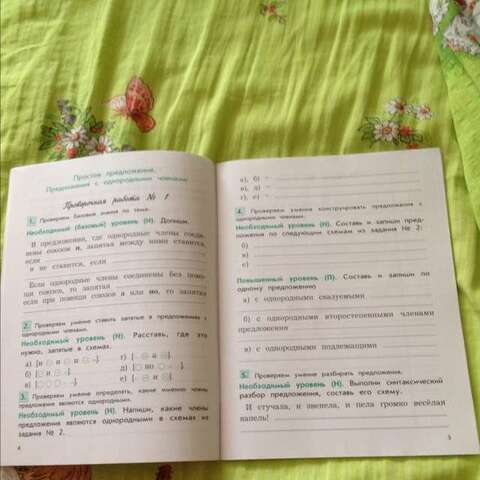 Простое предложение.
Предложения с однородными членами
Проверочная работа № 1
1. Проверяем базовые знания по теме.
Необходимый (базовый) уровень (Н). Допиши.
В предложении, где однородные члены соеди-
нены союзом и, запятая между ними ставится,
если
и не ставится, если
Если однородные члены соединены без помо-
щи союзов, то запятая
если при помощи союзов а или но, то запятая
2. Проверяем умение ставить запятые в предложениях с
однородными членами.
Необходимый уровень (Н). Расставь, где это
нужно, запятые в схемах.
а) [и и и –].
г) [ и ].
б) [ –].
д) [ но –].
в) [ –].
е) [ и ].
3. Проверяем умение определять, какие именно члены
предложения являются однородными.
Необходимый уровень (Н). Напиши, какие члены
предложения являются однородными в схемах из
задания № 2.
4
а), б) –
в), д) –
г), е) –
4. Проверяем умение конструировать предложения с
однородными членами.
Необходимый уровень (Н). Составь и запиши пред-
ложения по следующим схемам из задания № 2:
б)
в)
е)
Повышенный уровень (П). Составь и запиши по
одному предложению
а) с однородными сказуемыми
б) с однородными второстепенными членами
предложения
в) с однородными подлежащими
5. Проверяем умение разбирать предложения.
Необходимый уровень (Н). Выполни синтаксический
разбор предложения, составь его схему.
И стучала, и звенела, и пела громко весёлая
капель!
5